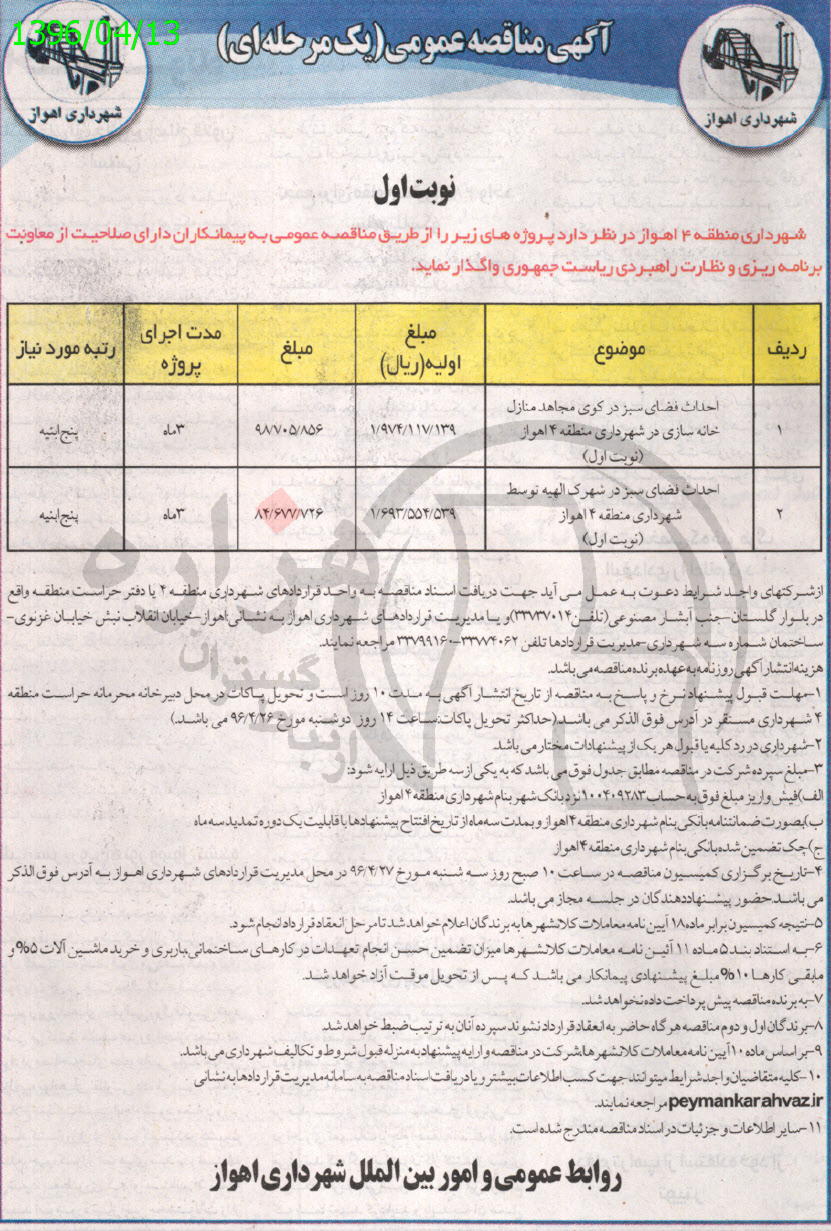 1396/04/13
آگهی مناقصه عمومی(یک مرحله ای)
شهرداری اهواز
شهرداری اهواز
نوبت اول
شهرداری منطقه ۴ اهواز در نظر دارد پروژه های زیر را از طریق مناقصه عمومی به پیمانکاران دارای صلاحیت از معاونت
برنامه ریزی و نظارت راهبردی ریاست جمهوری واگذار نماید.
ردیف موضوع مبلغ اولیه(ریال) مبلغ مدت اجرای پروژه رتبه مورد نیاز
۱ احداث فضای سبز در کوی مجاهد منازل خانه سازی در شهرداری منطقه ۴ اهواز (نوبت اول) ۱/۹۷۴/۱۱۷/۱۳۹ ۹۸۷۰۵/۸۵۶ ۳ماه پنج ابنیه
۲ احداث فضای سبز در شهرک الهیه توسط شهرداری منطقه ۴ اهواز (نوبت اول) ۱/۶۹۳/۵۵۴/۵۳۹ ۸۴/۶۷۷/۷۲۶ ۳ماه پنج ابنیه
ازشرکتهای واجد شرایط دعوت به عمل می آید جهت دریافت اسناد مناقصه به واحد قراردادهای شهرداری منطقه ۴ یا دفتر حراست منطقه واقع
در بلوار گلستان-جنب آبشار مصنوعی(تلفن۳۳۷۳۷۰۱۴)و یا مدیریت قراردادهای شهرداری اهواز به نشانی:اهواز-خیابان انقلاب نبش خیابان غزنوی-
ساختمان شماره سه شهرداری-مدیریت قراردادها تلفن ۳۳۷۷۴۰۶۲-۳۳۷۹۹۱۶۰ مراجعه نمایند.
هزینه انتشار آگهی روزنامه به عهده برنده مناقصه می باشد.
۱-مهلت قبول پیشنهاد نرخ و پاسخ به مناقصه از تاریخ انتشار آگهی به مدت ۱۰ روز است و تحویل پاکات در محل دبیرخانه محرمانه حراست منطقه
۴ شهرداری مستقر در آدرس فوق الذکر می باشد.(حداکثر تحویل پاکات:ساعت ۱۴ روز دوشنبه مورخ ۹۶/۴/۲۶ می باشد.)
۲-شهرداری در رد کلیه یا قبول هر یک از پیشنهادات مختار می باشد.
۳-مبلغ سپرده شرکت در مناقصه مطابق جدول فوق می باشد که به یکی از سه طریق ذیل ارایه شود:
الف)فیش واریز مبلغ فوق به حساب ۱۰۰۴۰۹۲۸۳ نزد بانک شهر بنام شهرداری منطقه ۴ اهواز
ب)بصورت ضمانتنامه بانکی بنام شهرداری منطقه ۴ اهواز و بمدت سه ماه از تاریخ افتتاح پیشنهادها با قابلیت یک دوره تمدید سه ماه
ج)چک تضمین شده بانکی بنام شهرداری منطقه ۴ اهواز
۴-تاریخ برگزاری کمیسیون مناقصه در ساعت ۱۰ صبح روز سه شنبه مورخ ۹۶/۴/۲۷ در محل مدیریت قراردادهای شهرداری اهواز به آدرس فوق الذکر
می باشد.حضور پیشنهاددهندگان در جلسه مجاز می باشد.
۵-نتیجه کمیسیون برابر ماده ۱۸ آیین نامه معاملات کلانشهرها به برندگان اعلام خواهد شد تا مرحل انعقاد قرارداد انجام شود.
۶-به استناد بند ۵ ماده ۱۱ آئین نامه معاملات کلانشهرها میزان تضمین حسن انجام تعهدات در کارهای ساختمانی،باربری و خرید ماشین آلات ۵% و
مبقی کارها ۱۰% مبلغ پیشنهادی پیمانکار می باشد که پس از تحویل موقت آزاد خواهد شد.
۷-به برنده مناقصه پیش پرداخت داده نخواهد شد.
۸-برندگان اول و دوم مناقصه هرگاه حاضر به انعقاد قرارداد نشوند سپرده آنان به ترتیب ضبط خواهد شد
۹-بر اساس ماده ۱۰ آیین نامه معاملات کلانشهرها،شرکت در مناقصه و ارایه پیشنهاد به منزله قبول شروط و تکالیف شهرداری می باشد.
۱۰-کلیه متقاضیان واجد شرایط میتوانند جهت کسب اطلاعات بیشتر و یا دریافت اسناد مناقصه به سامانه مدیریت قراردادها به نشانی
peymankarahvaz.ir مراجعه نمایند.
۱۱-سایر اطلاعات و جزئیات در اسناد مناقصه مندرج شده است.
روابط عمومی و امور بین الملل شهرداری اهواز
هزاره
گسترش